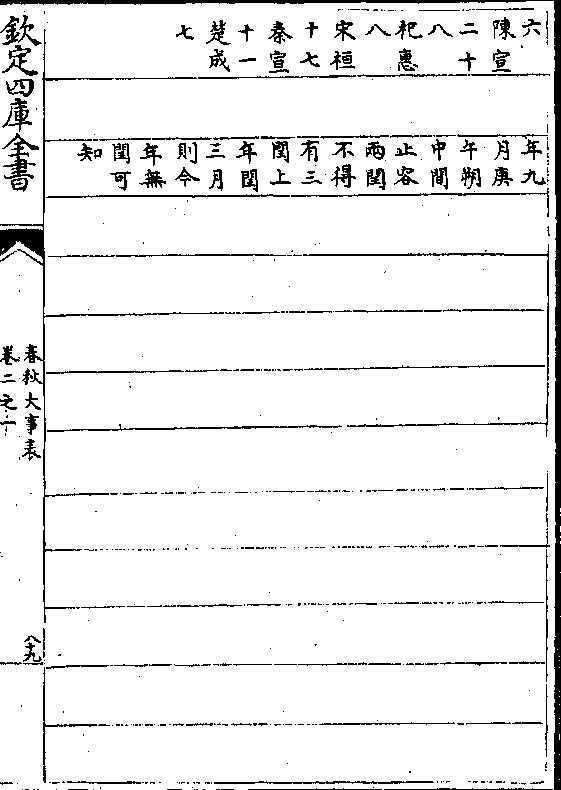 六
陳宣
二十
八
杞惠
八
宋桓
十七
秦宣
十一
楚成
七
年九
月庚
午朔
中間
止容
兩閏
不得
有三
閏上
年閏
三月
則今
年無
閏可
知
欽定四庫全書
春秋大事表
卷二之一
八十九